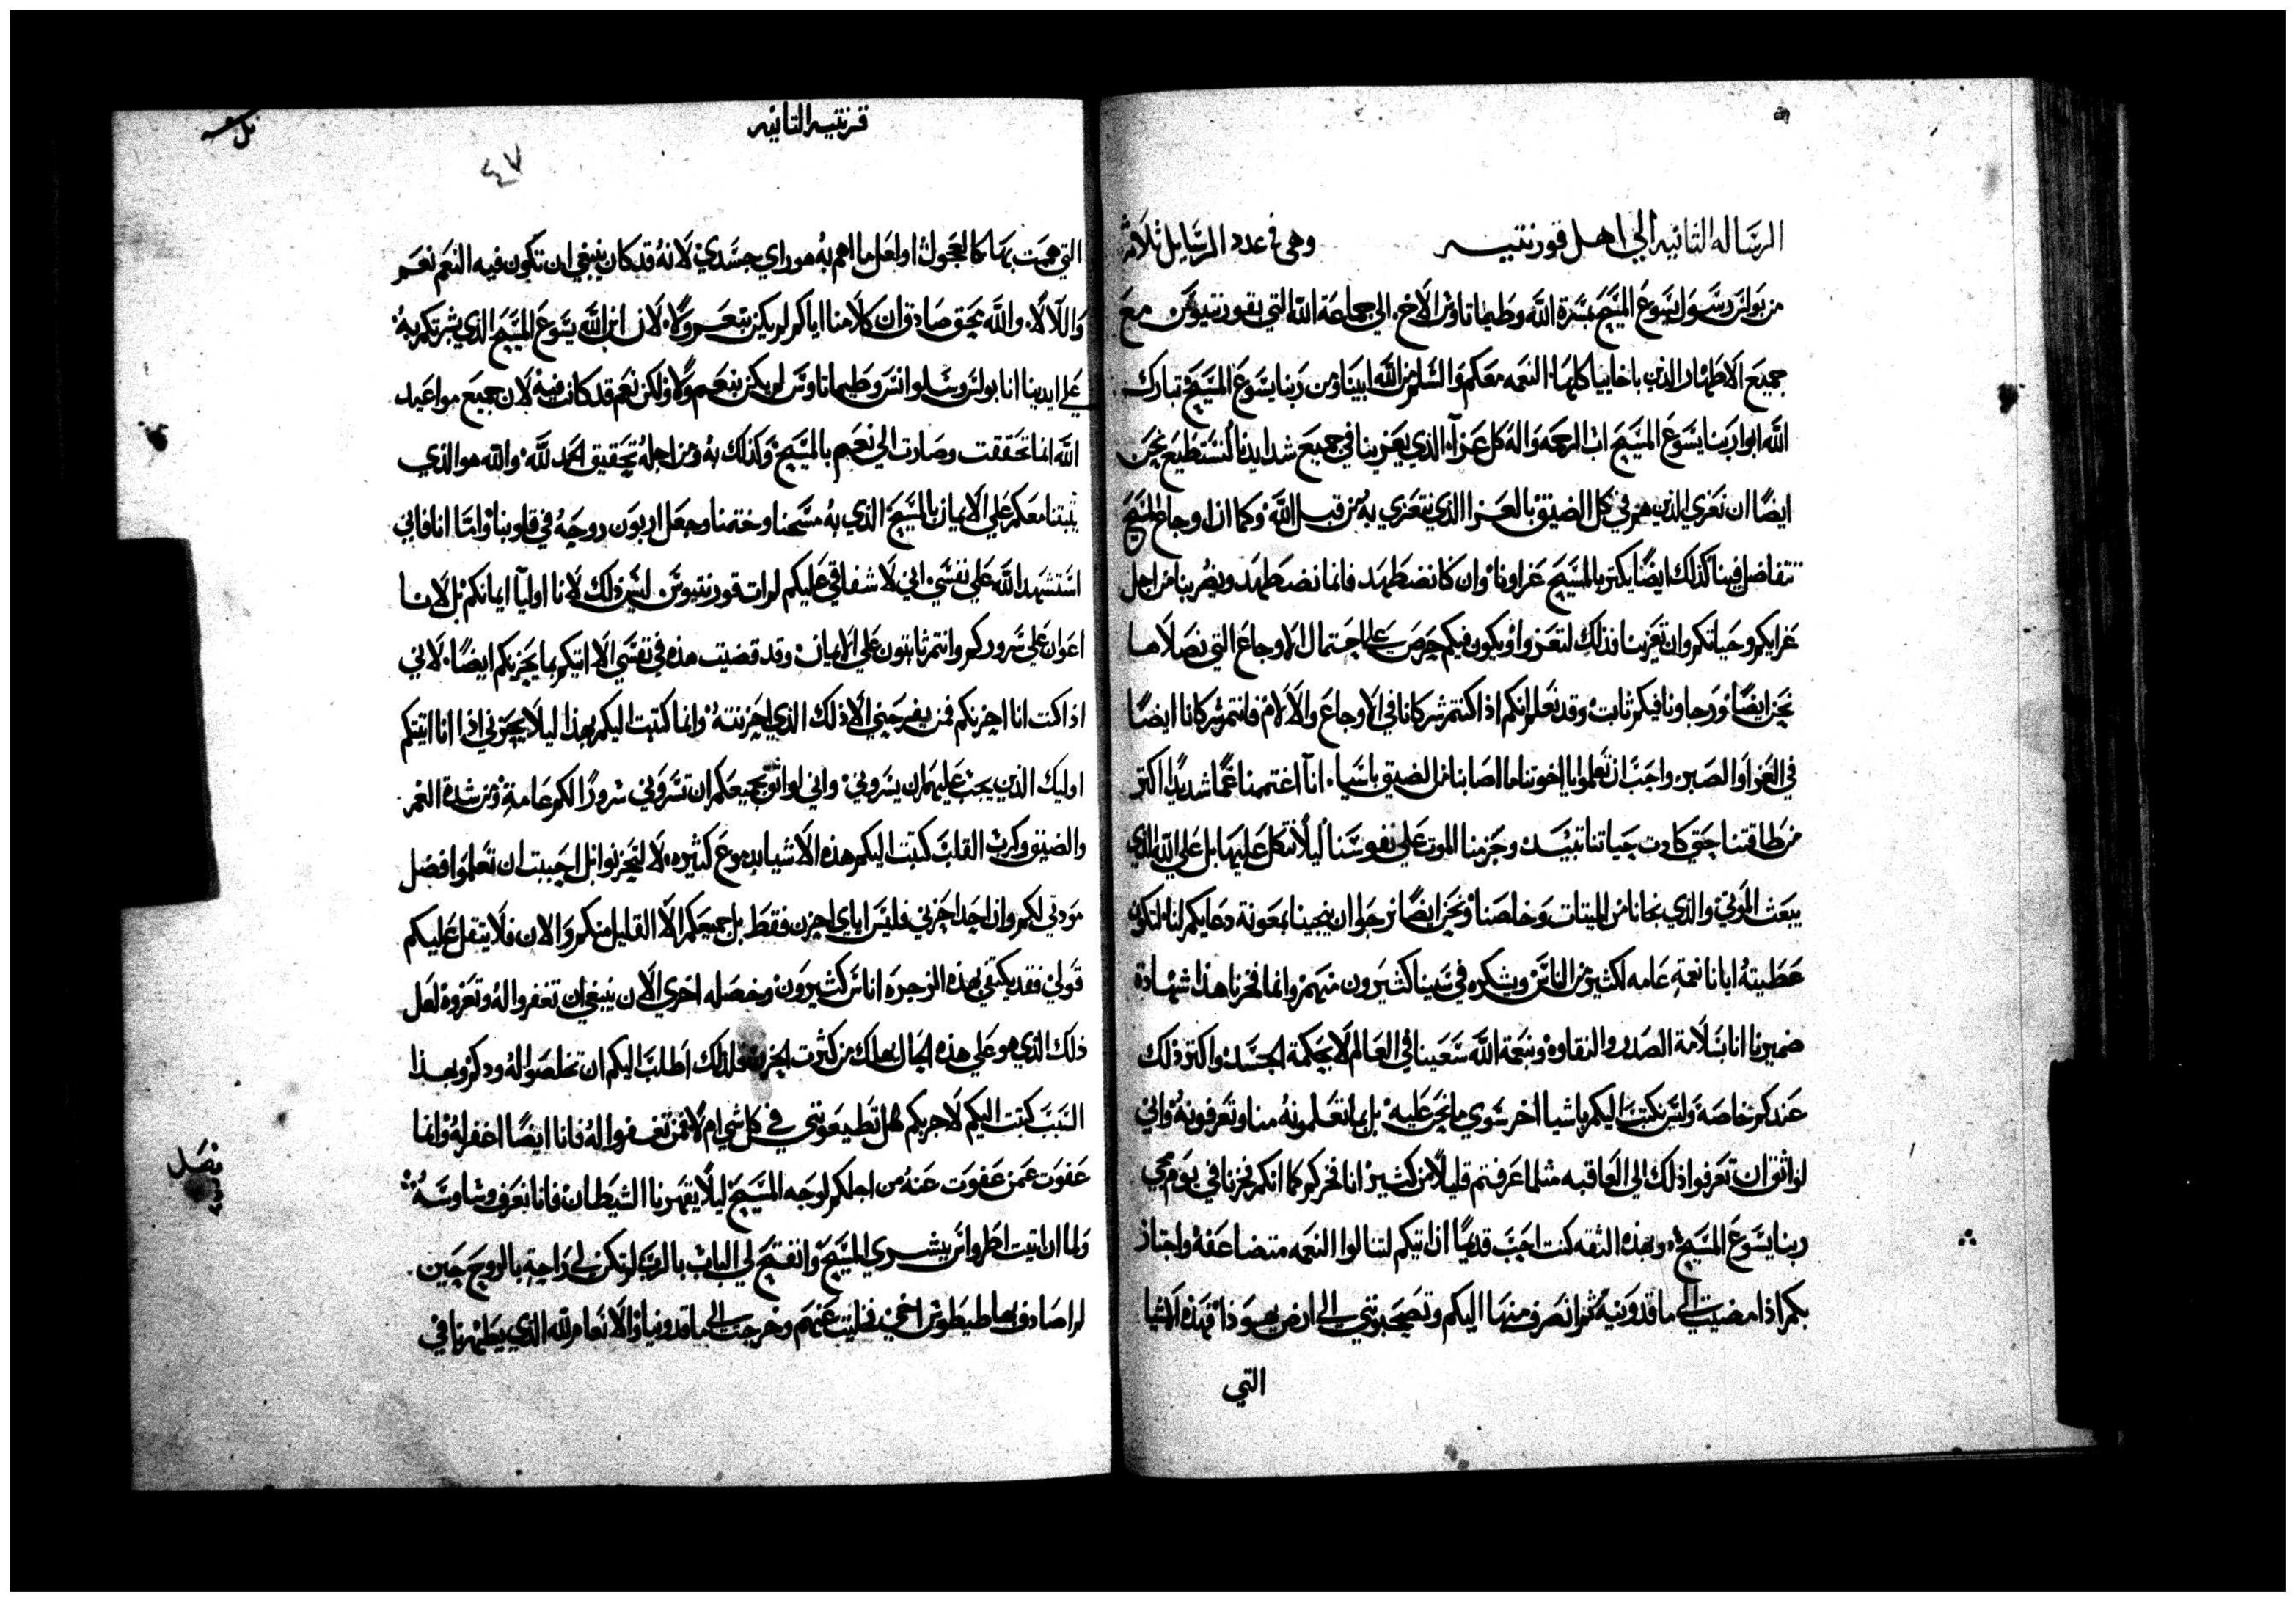 الرساله الثانيه الي اهل قورنتيه وهى فى عدد الرسايل ثلاثه
من بولس رسول يسوع المسيح بمسرة الله وطيماتاوس الاخ الي جماعة الله التي بقورنتيوس مع
جميع الاطهار الذين باخاييا كلها النعمه معكم والسلم من الله ابينا ومن ربنا يسوع المسيح تبارك
الله ابو ربنا يسوع المسيح اب الرحمه واله كل عزآ الذي يعزينا في جميع شدايدنا لنستطيع نحن
ايضًا ان نعزي الذين هم في كل الضيق بالعزا الذي نتعزي به من قبل الله وكما ان اوجاع المسيح
تتفاضل فينا كذلك ايضًا يكثر بالمسيح عزاونا وان كنا نضطهد فانما نضطهد ونضر بنا من اجل
عزايكم وحياتكم وان تعزينا فذلك لتعزوا ويكون فيكم حرص علي احتمال الاوجاع التي نصلاها
نحن ايضًا ورجاونا فيكم ثابت وقد نعلم انكم اذا كنتم شركانا في الاوجاع والالام فانتم شركانا ايضًا
في العزا والصبر واحب ان تعلموا يا اخوتنا ما اصابنا من الضيق باسيا انآ اغتممنا غمًا شديدًا اكتر
من طاقتنا حتي كادت حياتنا تبيد وحزمنا الموت علي نفوسنا ليلا نتكل عليها بل علي الله الذي
يبعث الموتي والذي نجانا من الميتات وخلصنا ونحن ايضًا نرجوا ان ينجينا بمعونة دعايكم لنا لتكون
عطيته ايانا نعمة عامه لكثير من الناس ويشكره في سببنا كثيرون منهم وانما فخرنا هذا شهادة
ضميرنا انا بسلامة الصدر والنقاوه وبنعمة الله سعينا في العالم لا بحكمة الجسد واكتر ذلك
عندكم خاصه ولسنا نكتب اليكم باشيا اخر سوي ما نحن عليه بل بما تعلمونه منا وتعرفونه واني
لواثق ان تعرفوا ذلك الي العاقبه مثلما عرفتم قليلًا من كثير انا فخركم كما انكم فخرنا في يوم مجي
ربنا يسوع المسيح وبهذه الثقه كنت احب قديمًا ان اتيكم لتنالوا النعمه متضاعفه واجتاز
بكم اذا مضيت الي ماقدونيه ثم انصرف منها اليكم وتصحبونني الي ارض يهوذا فهذه الاشيا
التي
قرنتيه الثانيه
٤٧
التي هممت بها كالعجول او لعل ما اهم به هو راي جسدي لانه قد كان ينبغي ان تكون فيه النعم نعم
واللا لا والله بحق صادق ان كلامنا اياكم لم يكن بنعم ولا لان ابن الله يسوع المسيح الذي بشرتكم به
علي ايدينا انا بولس وسلوانس وطيماتاوس لم يكن بنعم ولا ولكن نعم قد كانت فيه لان جميع مواعيد
الله انما تحققت وصارت الي نعم بالمسيح وكذلك به ومن اجله تحقيق الحمد لله والله هو الذي
يثبتنا معكم علي الايمان بالمسيح الذي به مسحنا وختمنا وجعل اربون روحه في قلوبنا واما انا فاني
استشهد الله علي نفسي اني لاشفاقي عليكم لم ات قورنتيوس ليس ذلك لانا اوليا ايمانكم بل لانا
اعوان علي سروركم وانتم ثابتون علي الايمان وقد قضيت هذه في نفسي الا اتيكم بما يحزنكم ايضًا لاني
اذا كنت انا احزنكم فمن يفرحني الا ذلك الذي احزنته وانما كتبت اليكم بهذا ليلا يحزنوني اذا انا اتيتكم
اوليك الذين يجب عليهم ان يسروني واني لواثق بجميعكم ان تسروني سرورًا لكم عامة ومن شدة الغم
والضيق وكرب القلب كتبت اليكم هذه الاشيا بدموع كثيره لا لتحزنوا بل احببت ان تعلموا فضل
مودتي لكم وان احد احزني فليس اياي احزن فقط بل جميعكم الا القليل منكم والان فلا يثقل عليكم
قولي فقد يكتفي بهذه الزجره اناس كثيرون وخصله اخري الان ينبغي ان تغفروا له وتعزوه لعل
ذلك الذي هو علي هذه الحال يهلك من كثرت الحزن فلذلك اطلب اليكم ان تخلصوا له ودكم وبهذا
السبب كتبت اليكم لاجربكم هل تطيعونني في كل شي ام لا فمن تغفروا له فانا ايضًا اغفر له وانما
عفوت عمن عفوت عنه من اجلكم لوجه المسيح ليلًا يقهرنا الشيطان فانا نعرف وساوسه
ولما ان اتيت اطرواس ببشري المسيح وانفتح لي الباب بالرب لم تكن لي راحة بالروح حين
لم اصادف بها طيطوس اخي فخليت عنهم وخرجت الي ماقدونيا والانعام لله الذي يظهرنا في
فصل